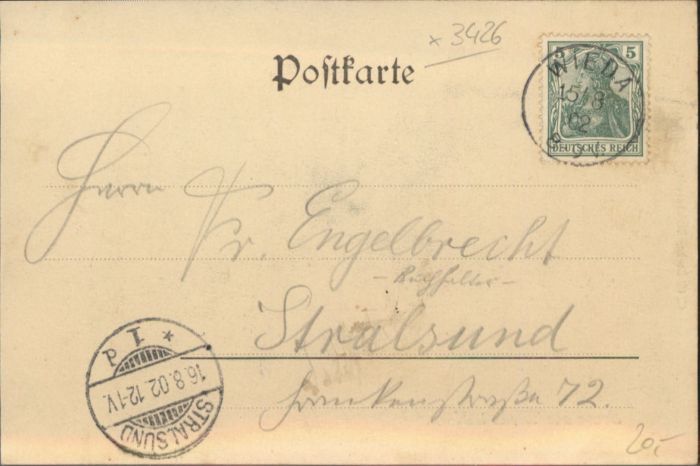 x 3426
Postkarte
5
WIEDA
15/8
02
8-9V.
DEUTSCHES REICH
Herrn
Fr. Engelbrecht
- Buchhalter -
Stralsund
Frankenstraße 72.
* 1 d
16.8.02.12-1V.
STRALSUND
20,-